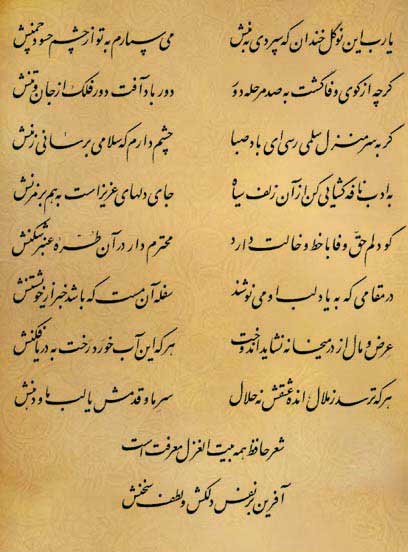 یارب این نوگل خندان که سپردی به منش می سپارم به تو از چشم حسود چمنش
گرچه از کوی وفا گشت به صد مرحله دور دور باد آفت دور فلک از جان و تنش
گر به سر منزل سلمی رسی ای باد صبا چشم دارم که سلامی برسانی ز منش
به ادب نافه گشایی کن از آن زلف سیاه جای دلهای عزیز است به هم بر مزنش
گو دلم حق وفا با خط و خالت دارد محترم دار در آن طره عنبر شکنش
در مقامی که به یاد لب او می نوشند سفله آن مست که باشد خبر از خویشتنش
عرض و مال از در میخانه نشاید اندوخت هر که این آب خورد رخت به دریا فکنش
هر که ترسد ز ملال انده عشقش نه حلال سر ما و قدمش یا لب ما و دهنش
شعر حافظ همه بیت الغزل معرفت است
آفرین بر نفس دلکش و لطف سخنش